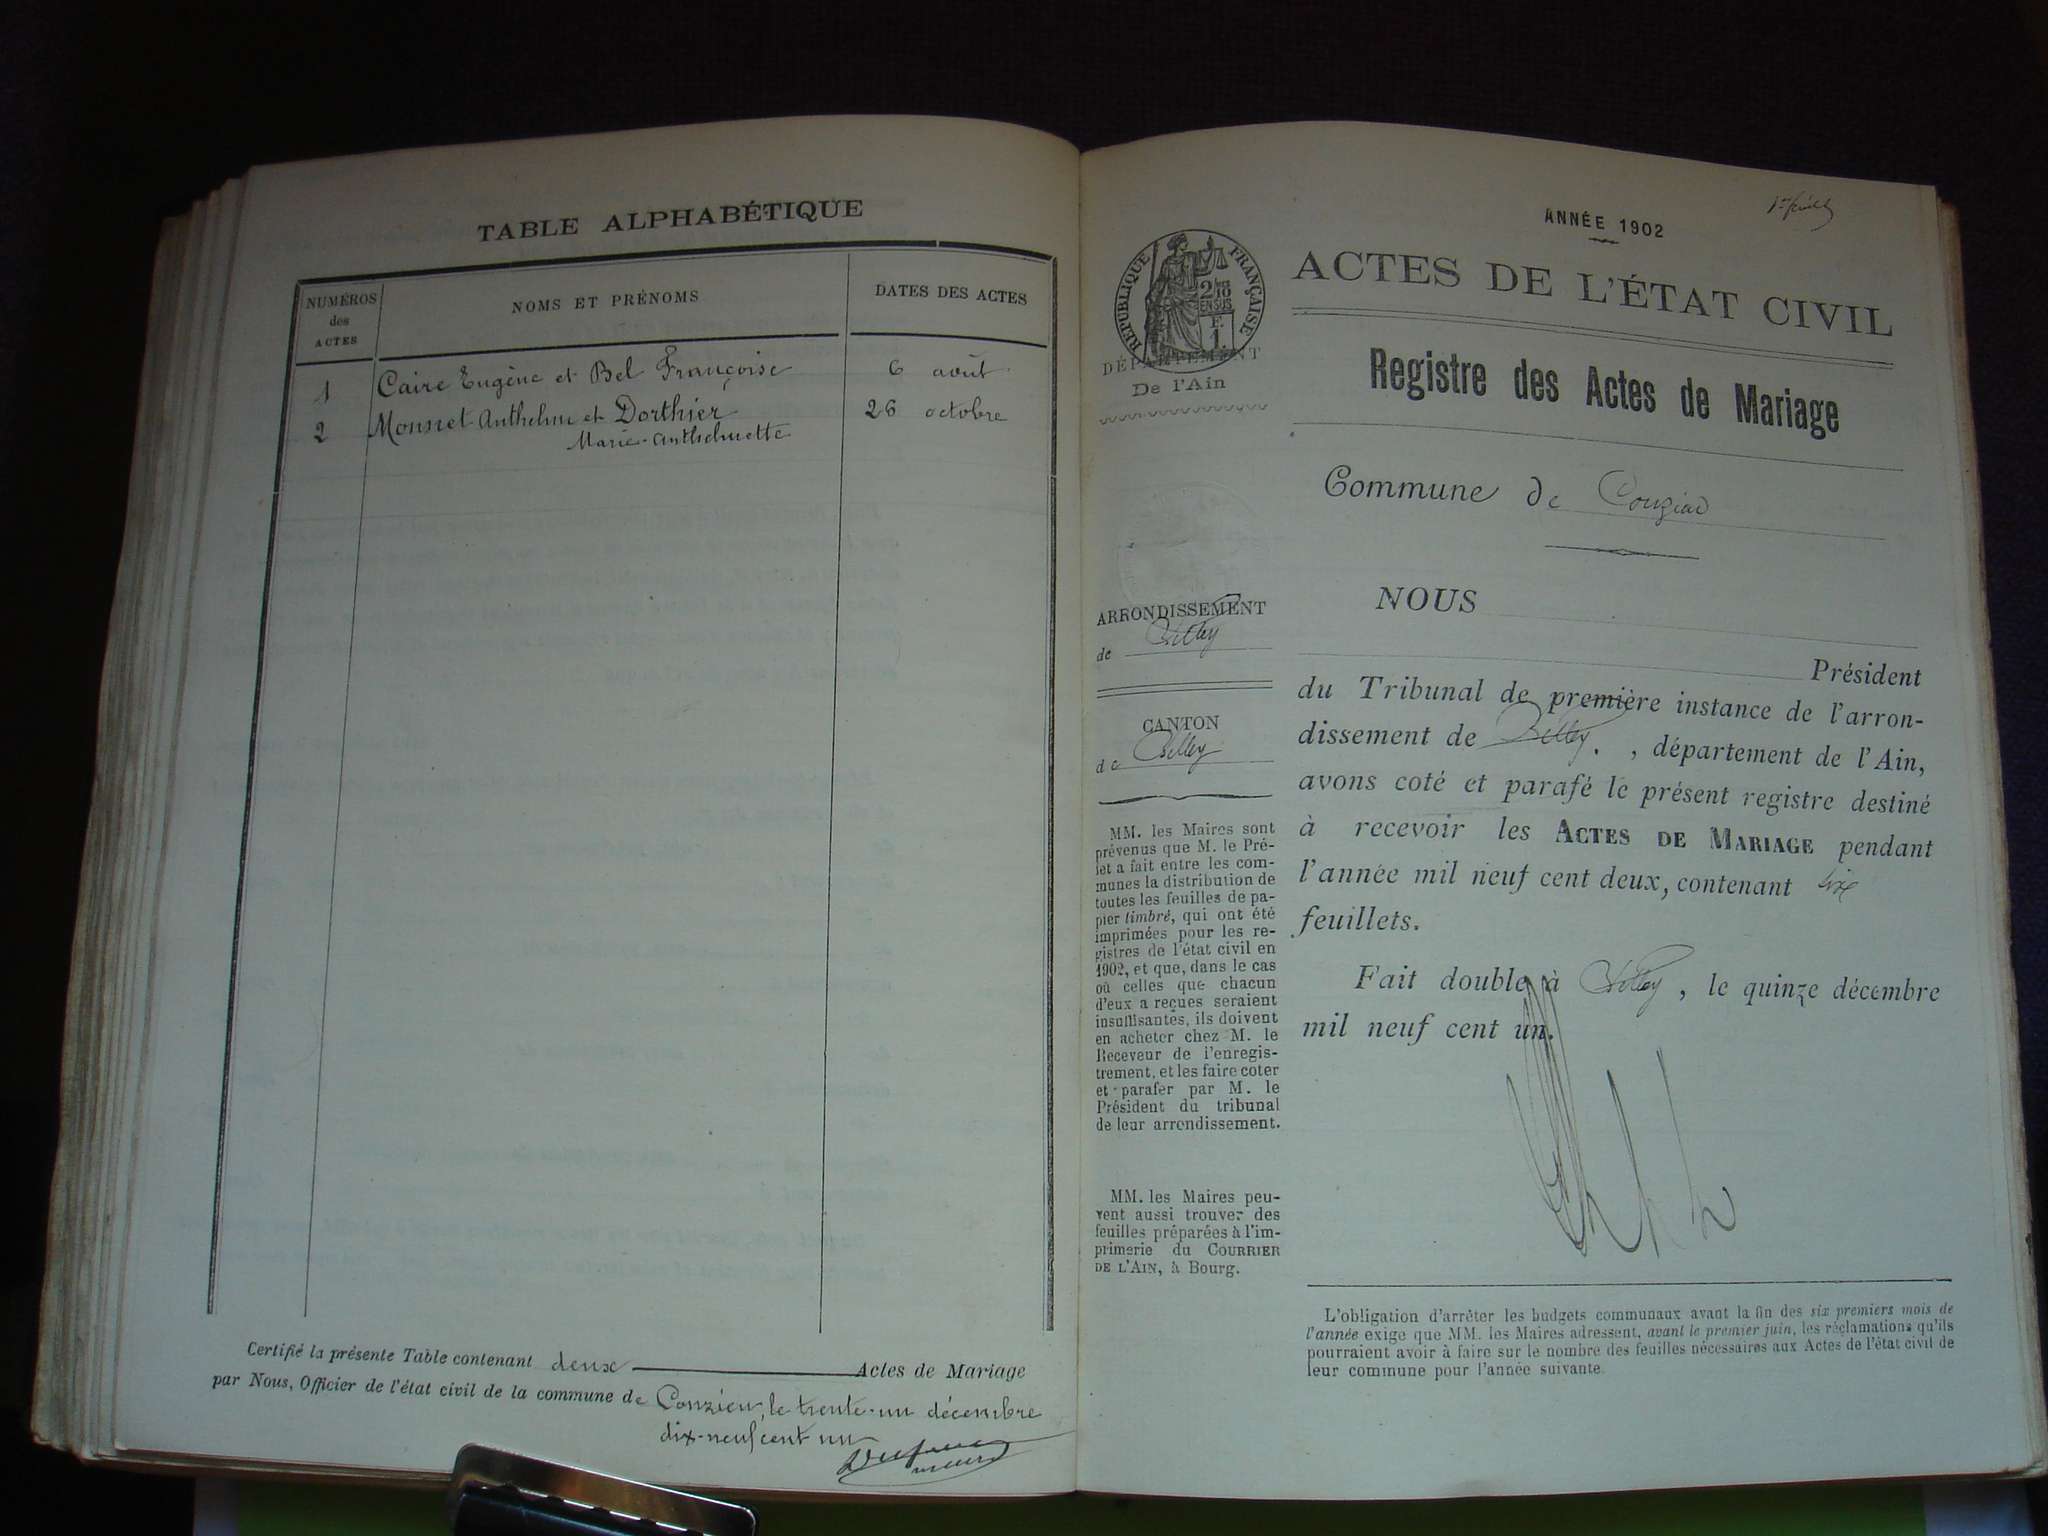 TABLE ALPHABÉTIQUE
NUMÉROS
des
ACTES
NOMS ET PRÉNOMS
DATES DES ACTES
1 Caire Eugène et Bel Françoise 6 août
2 Monnet Anthelme et Dorthier 26 octobre
Marie-Anthelmette
Certifié la présente Table contenant deux Actes de Mariage
par Nous, Officier de l'état civil de la commune de Conzieu, le trente-un décembre
dix-neuf cent un
ANNÉE 1902
RÉPUBLIQUE FRANÇAISE
DÉPARTEMENT
De l'Ain
ARRONDISSEMENT
de Belley
CANTON
de Belley
MM. les Maires sont
prévenus que M. le Pré-
fet a fait entre les com-
munes la distribution de
toutes les feuilles de pa-
pier timbré, qui ont été
imprimées pour les re-
gistres de l'état civil en
1902, et que, dans le cas
où celles que chacun
d'eux a reçues seraient
insuffisantes, ils doivent
en acheter chez M. le
Receveur de l'enregis-
trement, et les faire coter
et parafer par M. le
Président du tribunal
de leur arrondissement.
MM. les Maires peu-
vent aussi trouver des
feuilles préparées à l'im-
primerie du COURRIER
DE L'AIN, à Bourg.
ACTES DE L'ÉTAT CIVIL
Registre des Actes de Mariage
Commune de Conzieu
NOUS
Président
du Tribunal de première instance de l'arron-
dissement de Belley, département de l'Ain,
avons coté et parafé le présent registre destiné
à recevoir les ACTES DE MARIAGE pendant
l'année mil neuf cent deux, contenant six
feuillets.
Fait double à Belley, le quinze décembre
mil neuf cent un.
L'obligation d'arrêter les budgets communaux avant la fin des six premiers mois de
l'année exige que MM. les Maires adressent, avant le premier juin, les réclamations qu'ils
pourraient avoir à faire sur le nombre des feuilles nécessaires aux Actes de l'état civil de
leur commune pour l'année suivante.